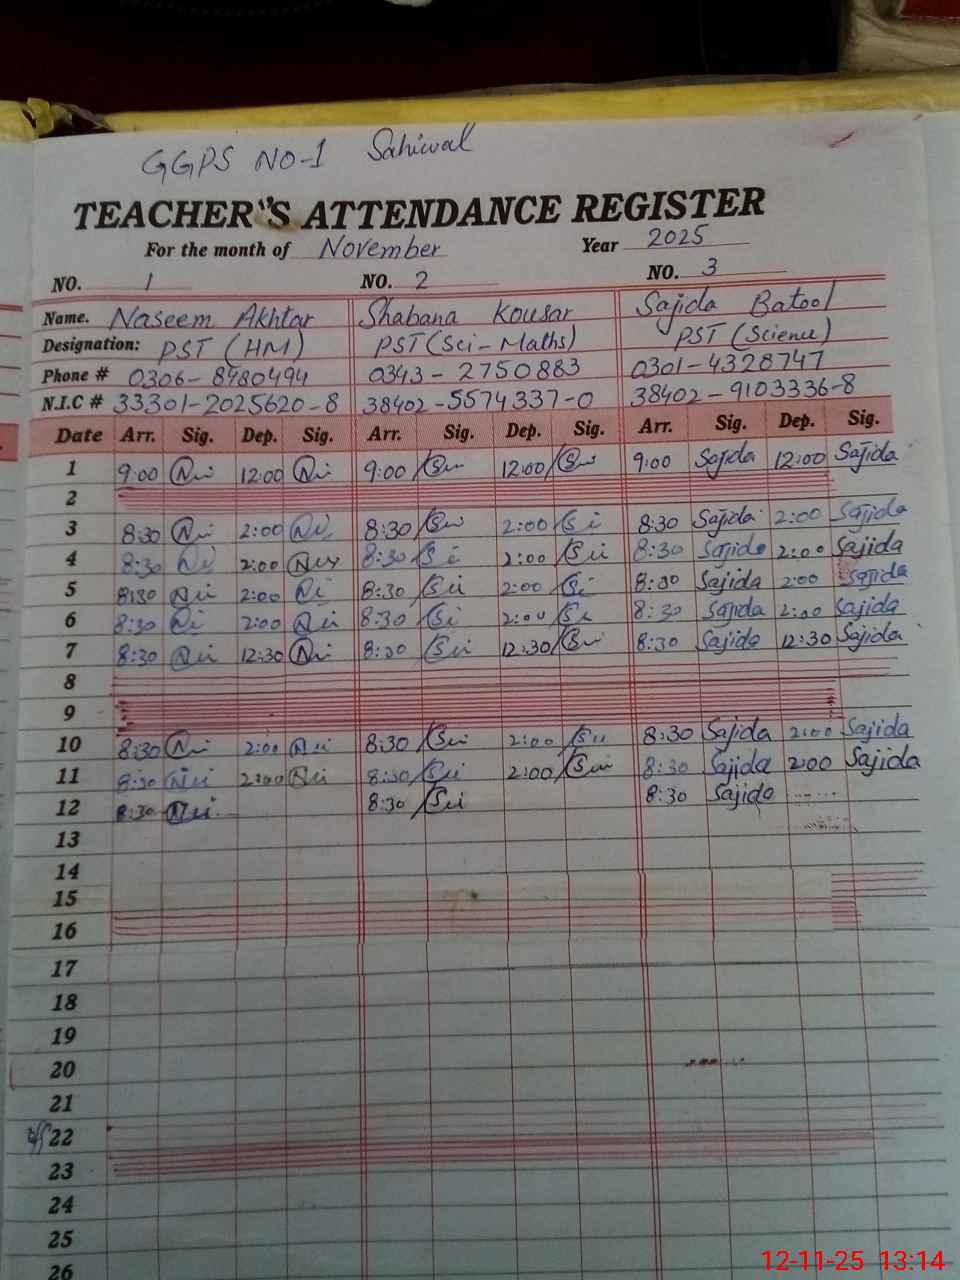 GGPS NO-1 Sahiwal
TEACHER'S ATTENDANCE REGISTER
For the month of November Year 2025
NO. 1 NO. 2 NO. 3
Name. Naseem Akhtar Shabana Kousar Sajida Batool
Designation: PST (HM) PST (Sci-Maths) PST (Science)
Phone # 0306-8980494 0343-2750883 0301-4328747
N.I.C # 33301-2025620-8 38402-5574337-0 38402-9103336-8
Date Arr. Sig. Dep. Sig. Arr. Sig. Dep. Sig. Arr. Sig. Dep. Sig.
1 9:00 12:00 9:00 12:00 9:00 Sajida 12:00 Sajida
2
3 8:30 2:00 8:30 2:00 8:30 Sajida 2:00 Sajida
4 8:30 2:00 8:30 2:00 8:30 Sajida 2:00 Sajida
5 8:30 2:00 8:30 2:00 8:30 Sajida 2:00 Sajida
6 8:30 2:00 8:30 2:00 8:30 Sajida 2:00 Sajida
7 8:30 12:30 8:30 12:30 8:30 Sajida 12:30 Sajida
8
9
10 8:30 2:00 8:30 2:00 8:30 Sajida 2:00 Sajida
11 8:30 2:00 8:30 2:00 8:30 Sajida 2:00 Sajida
12 8:30 8:30 8:30 Sajida
13
14
15
16
17
18
19
20
21
22
23
24
25
26
12-11-25 13:14